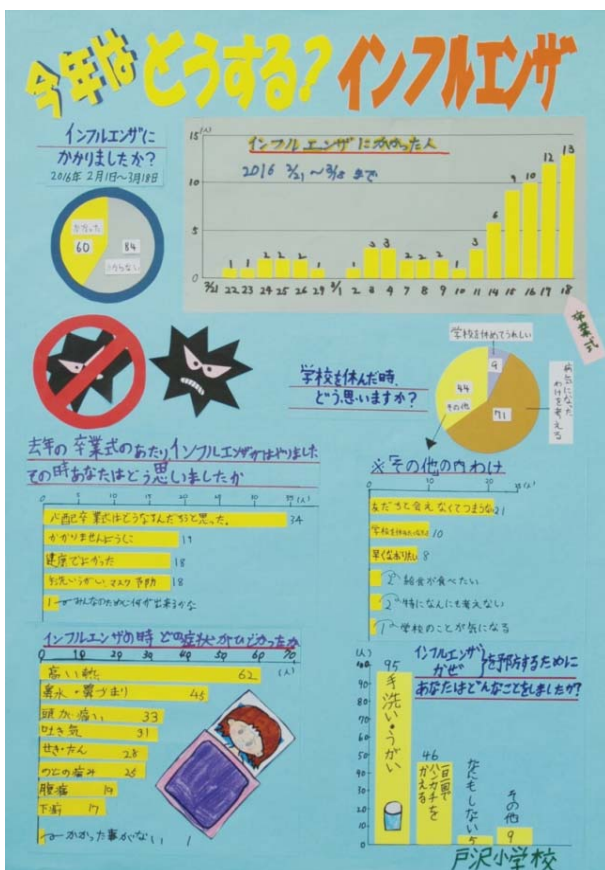 今年はどうする？インフルエンザ
インフルエンザに
かかりましたか？
2016年 2月1日～3月18日
かかった
60
84
かからない
(人)
インフルエンザにかかった人
2016 2/21～3/18 まで
15
10
5
0
1 1 2 2 2 1 1 3 3 2 2 2 1 3 6 9 10 12 13
2/21 22 23 24 25 26 29 3/1 2 3 4 7 8 9 10 11 14 15 16 17 18
卒業式
学校を休んだ時、
どう思いますか？
学校を休めてうれしい
9
44
その他
71
病気になった
わけを考える
去年の卒業式のあたりインフルエンザがはやりました
その時あなたはどう思いましたか
0 5 10 15 20 25 30 35 (人)
心配 卒業式はどうなるんだろうと思った。 34
かかりませんように 19
健康でよかった 18
手洗いうがい、マスク 予防 18
1 みんなのために何が出来るかな
※その他の内わけ
0 10 20 (人)
友だちと会えなくてつまらない 21
10
早くなおりたい 8
2 給食が食べたい
2 特になんにも考えない
1 学校のことが気になる
インフルエンザの時 どの症状がひどかったか
0 10 20 30 40 50 60 70 (人)
高い熱 62
鼻水・鼻づまり 45
頭が痛い 33
吐き気 31
せき・たん 28
のどの痛み 25
腹痛 19
下痢 17
かかった事がない 1
インフルエンザ
かぜ
を予防するために
あなたはどんなことをしましたか？
(人)
100
90
80
70
60
50
40
30
20
10
0
95
手洗い・うがい
46
一日一回で
ハンカチを
かえる
なにもしない 5
その他
9
戸沢小学校